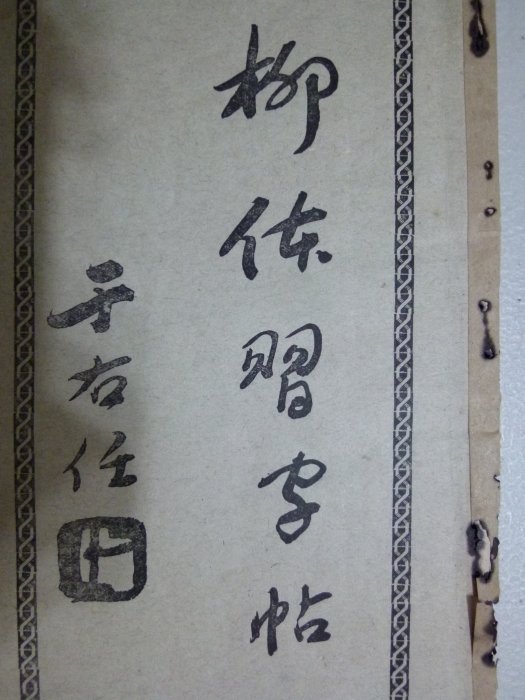 柳体習字帖
于右任